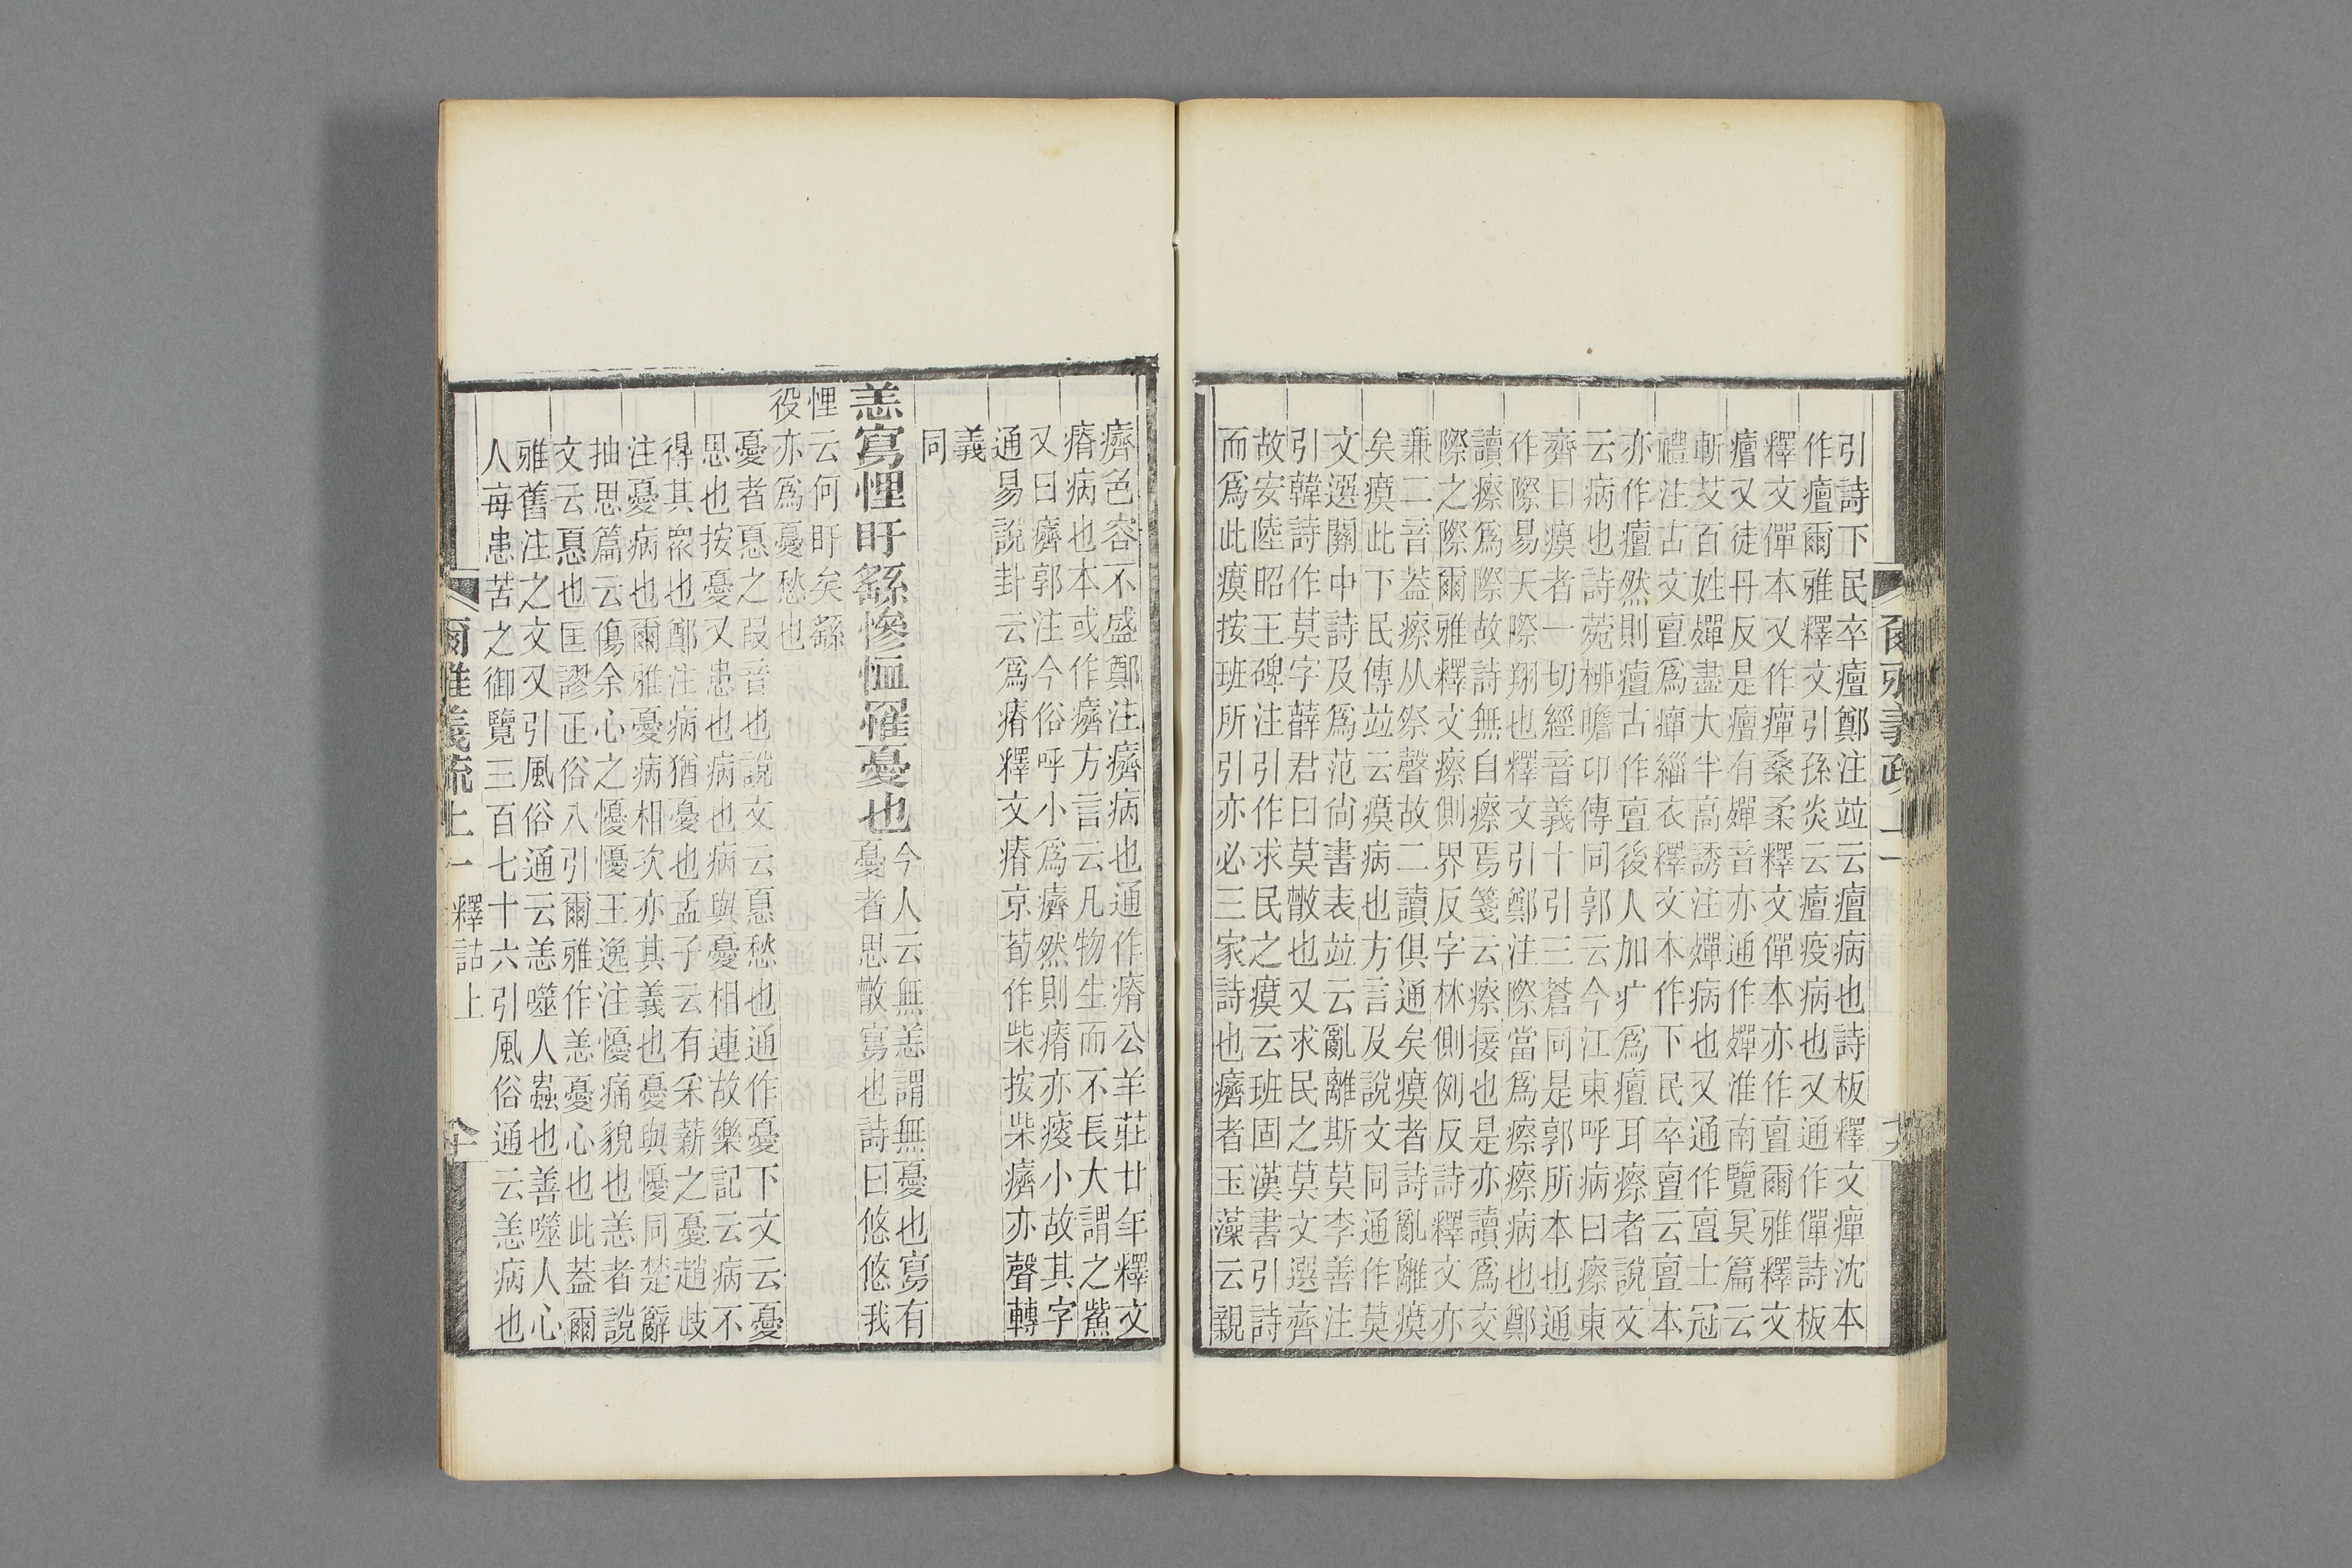 引詩下民卒𤺺鄭注竝云𤺺病也詩板釋文癉沈本
作𤺺爾雅釋文引孫炎云𤺺疫病也又通作僤詩板
釋文僤本又作癉桑柔釋文僤本亦作亶爾雅釋文
𤺺又徒丹反是𤺺有嬋音亦通作嬋淮南覽冥篇云
斬艾百姓嬋盡大半高誘注嬋病也又通作亶士冠
禮注古文亶爲癉緇衣釋文本作下民卒亶云亶本
亦作𤺺然則𤺺古作亶後人加疒爲𤺺耳瘵者說文
云病也詩菀柳瞻卬傳同郭云今江東呼病曰瘵東
齊曰瘼者一切經音義十引三蒼同是郭所本也通
作際易天際翔也釋文引鄭注際當爲瘵瘵病也鄭
讀瘵爲際故詩無自瘵焉箋云瘵接也是亦讀爲交
際之際爾雅釋文瘵側界反字林側例反詩釋文亦
兼二音蓋瘵从祭聲故二讀俱通矣瘼者詩亂離瘼
矣瘼此下民傳竝云瘼病也方言及說文同通作莫
文選關中詩及爲范尚書表竝云亂離斯莫李善注
引韓詩作莫字薛君曰莫散也又求民之莫文選齊
故安陸昭王碑注引作求民之瘼云班固漢書引詩
而爲此瘼按班所引亦必三家詩也癠者玉藻云親
癠色容不盛鄭注癠病也通作瘠公羊莊廿年釋文
瘠病也本或作癠方言云凡物生而不長大謂之鮆
又曰癠郭注今俗呼小爲癠然則瘠亦痩小故其字
通易說卦云爲瘠釋文瘠京荀作柴按柴癠亦聲轉
義
同
恙寫悝盱繇慘恤罹憂也
今人云無恙謂無憂也寫有
憂者思散寫也詩曰悠悠我
悝云何盱矣繇
役亦爲憂愁也
憂者惪之叚音也說文云惪愁也通作憂下文云憂
思也按憂又患也病也病與憂相連故樂記云病不
得其眾也鄭注病猶憂也孟子云有采薪之憂趙岐
注憂病也爾雅憂病相次亦其義也憂與懮同楚辭
抽思篇云傷余心之懮懮王逸注懮痛貌也恙者說
文云惪也匡謬正俗八引爾雅作恙憂心也此蓋爾
雅舊注之文又引風俗通云恙噬人蟲也善噬人心
人每患苦之御覽三百七十六引風俗通云恙病也
爾雅義疏上一 釋詁上